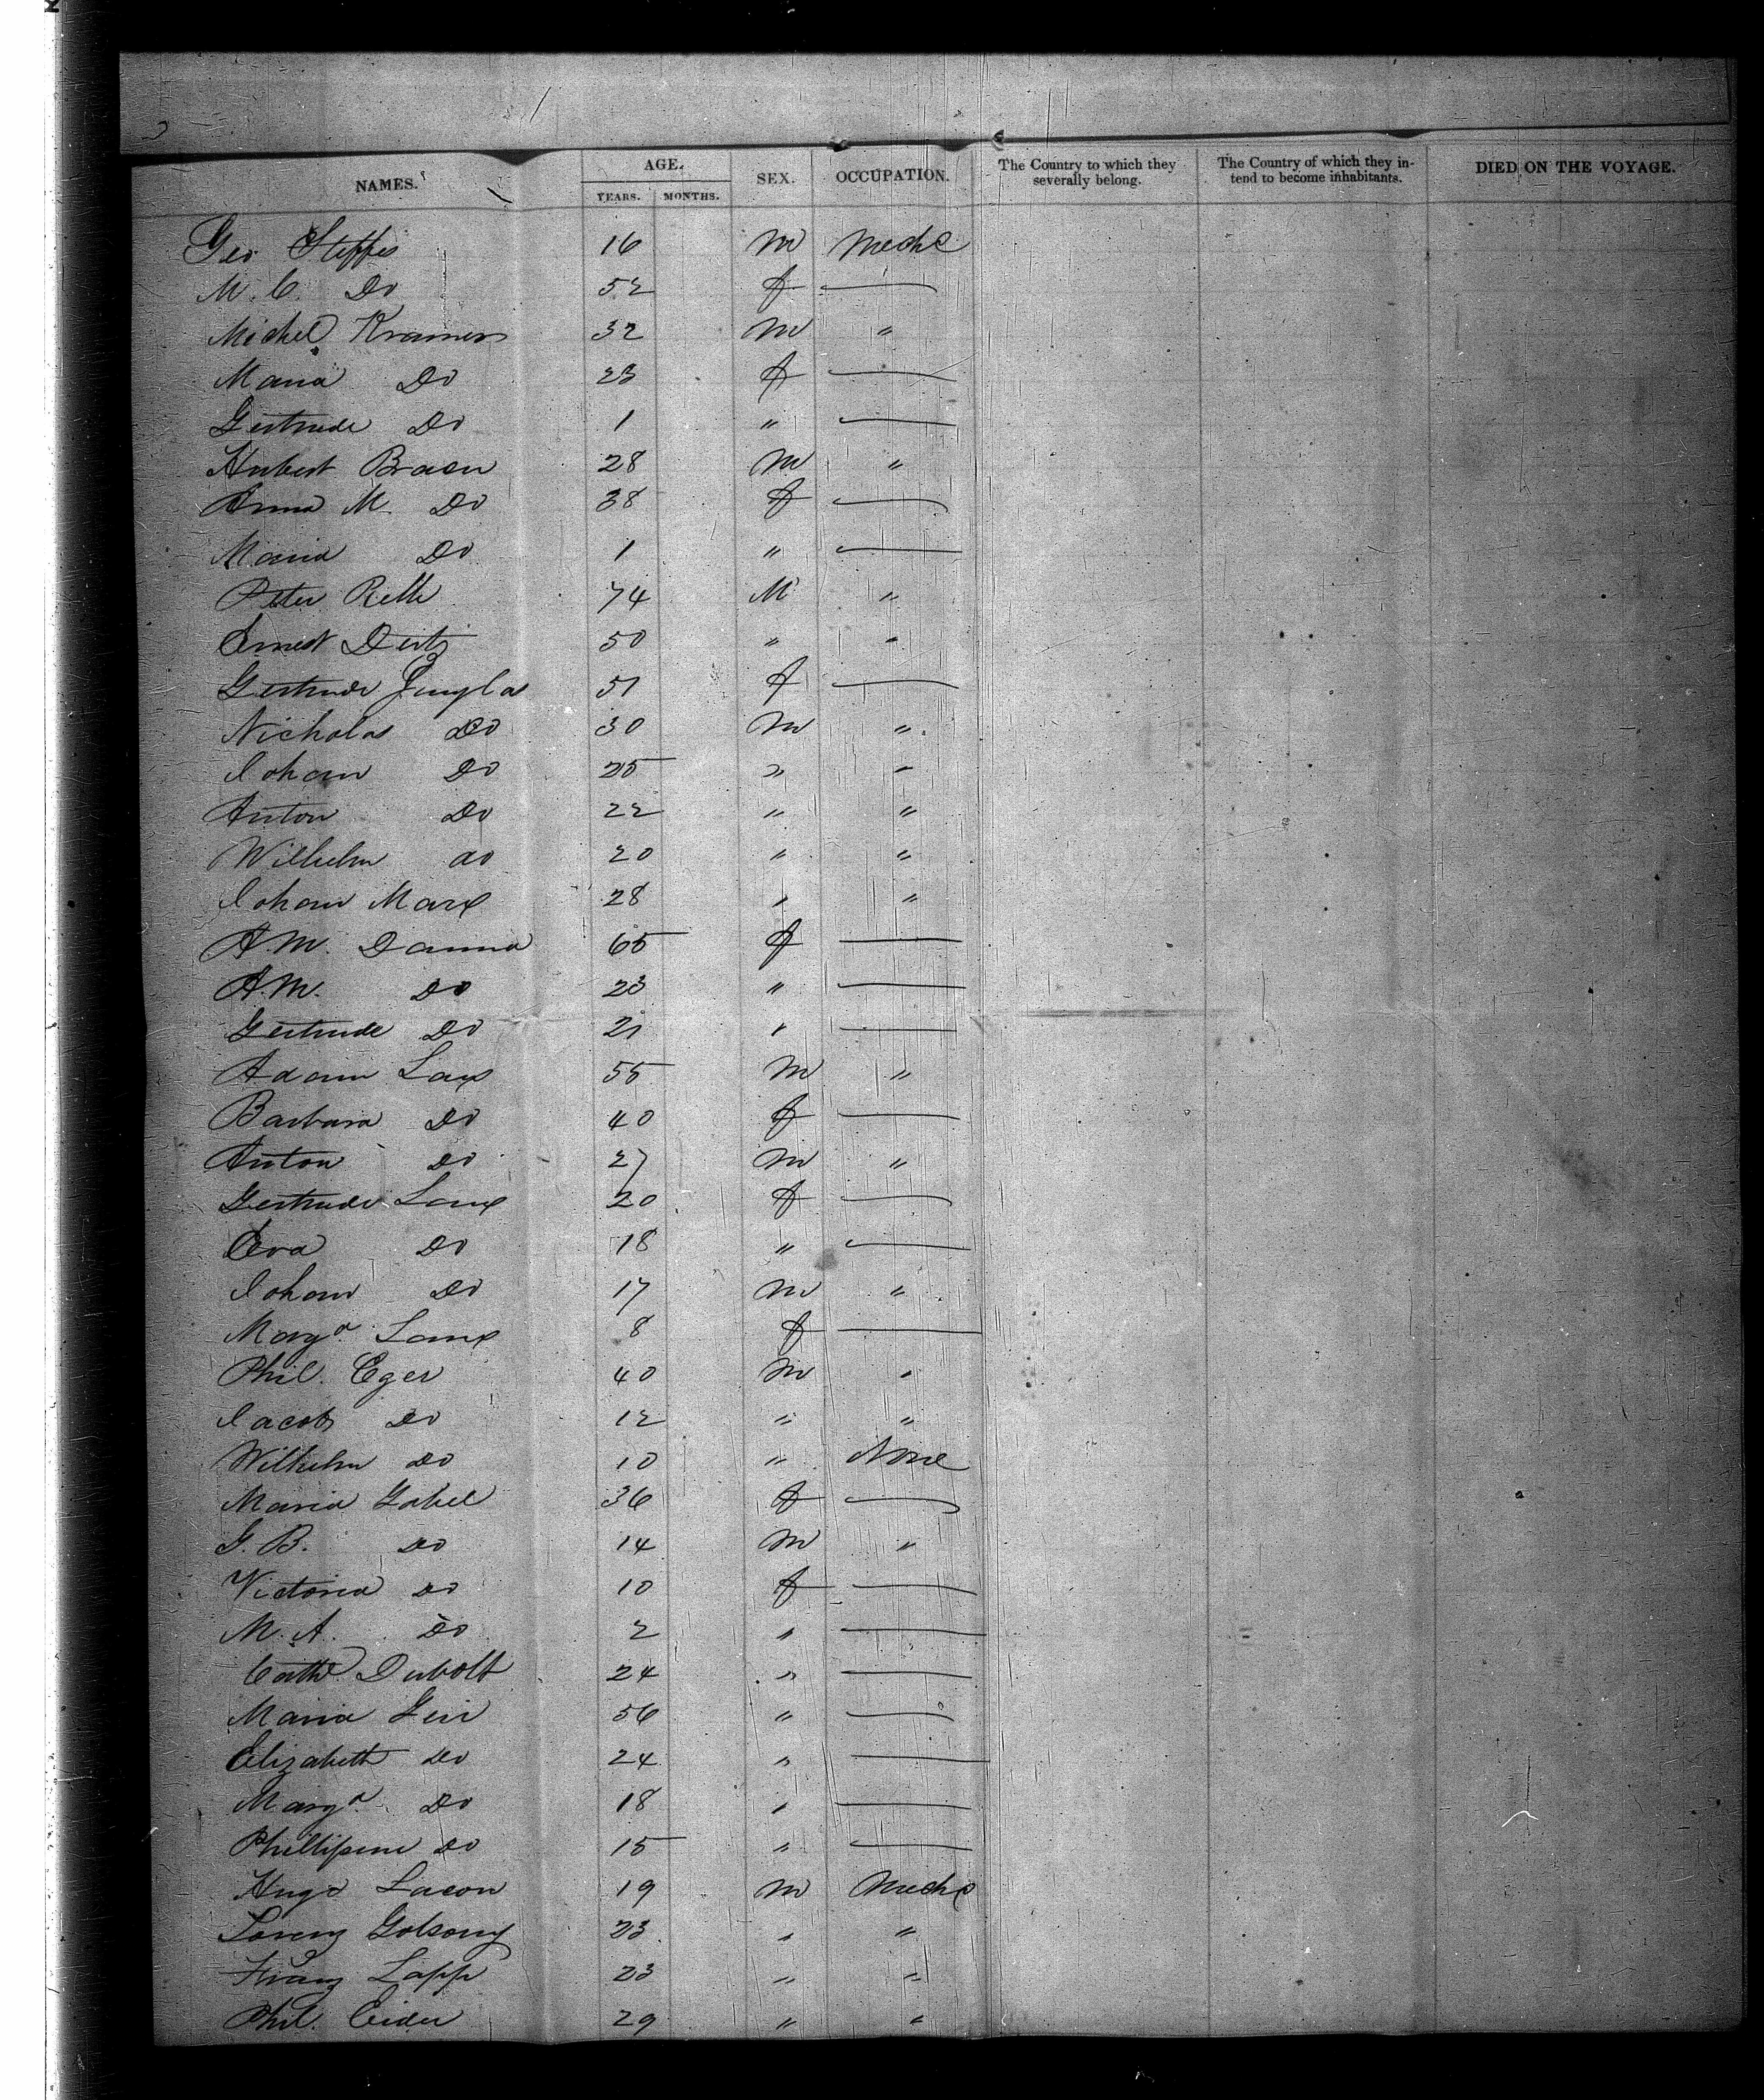 NAMES. AGE. YEARS. MONTHS. SEX. OCCUPATION. The Country to which they severally belong. The Country of which they intend to become inhabitants. DIED ON THE VOYAGE.
Geo Steffes 16 m Mechc
M. C. Do 52 f —
Michel Kramer 32 m "
Maria Do 23 f —
Gertrude Do 1 " —
Hubert Braen 28 m "
Anna M. Do 38 f —
Maria Do 1 " —
Peter Reth 74 M "
Ernest Deitz 50 " "
Gertrude Junglas 51 f —
Nicholas Do 30 m "
Johann Do 25 " "
Anton Do 22 " "
Wilhelm do 20 " "
Johann Marx 28 " "
A.M. Damma 65 f —
A.M. Do 23 " —
Gertrude Do 21 " —
Adam Laux 55 m "
Barbara Do 40 f —
Anton Do 27 m "
Gertrude Laux 20 f —
Eva Do 18 " —
Johann Do 17 m "
Marga Laux 8 f —
Phil. Eger 40 m "
Jacob Do 12 " "
Wilhelm Do 10 " None
Maria Gabel 36 f —
G. B. Do 14 m "
Victoria Do 10 f —
M. A. Do 2 " —
Cathe Dubolt 24 " —
Maria Geir 56 " —
Elizabeth Do 24 " —
Marga Do 18 " —
Phillipine Do 15 " —
Hugo Lacon 19 m Mechc
Lorenz 23 " "
Franz Lapp 23 " "
Phil. Eider 29 " "